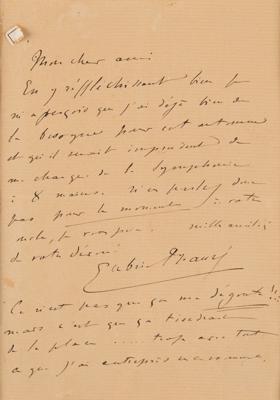 Mon cher ami
En y réfléchissant bien je
m'aperçois que j'ai déjà bien de
la besogne pour cet automne
et qu'il serait imprudent de
me charger de la Symphonie
à 8 mains. N'en parlez donc
pas pour le moment à votre
je vous prie. mille amitiés
de votre dévoué
Gabriel Fauré
Ce n'est pas que ça me dégoûte!!!
mais c'est que ça tiendrait
de la place ..... trop avec tout
ce que j'ai entrepris